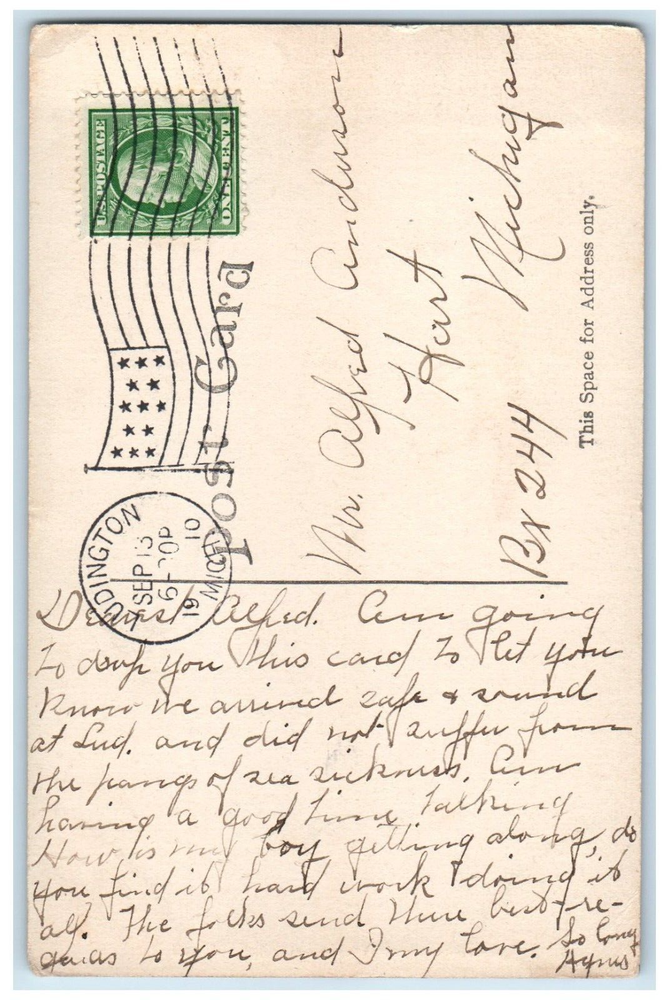 U.S. POSTAGE
ONE CENT
Post Card
LUDINGTON
SEP 13
6-30P
19 10
MICH.
Mr. Alfred Anderson
Hart
Michigan
Bx 244
This Space for Address only.
Dearest Alfred. Am going
to drop you this card to let you
know we arrived safe & sound
at Lud. and did not suffer from
the pangs of sea sickness. Am
having a good time talking
How is my boy getting along, do
you find it hard work doing it
all. The folks send there best re-
gards to you, and I my love. So long